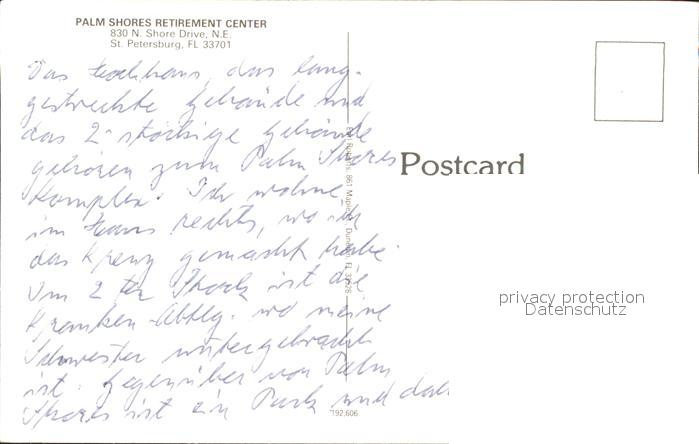 PALM SHORES RETIREMENT CENTER
830 N. Shore Drive, N.E.
St. Petersburg, FL 33701
Das Hochhaus, das lang-
gestreckte Gebäude und
das 2-stöckige Gebäude
gehören zum Palm Shores
Komplex. Ich wohne
im Haus rechts, wo ich
das Kreuz gemacht habe.
Im 2ten Stock ist die
Kranken-Abtlg. wo meine
Schwester untergebracht
ist. Gegenüber von Palm
Shores ist ein Park und
Postcard
privacy protection
Datenschutz
192,606